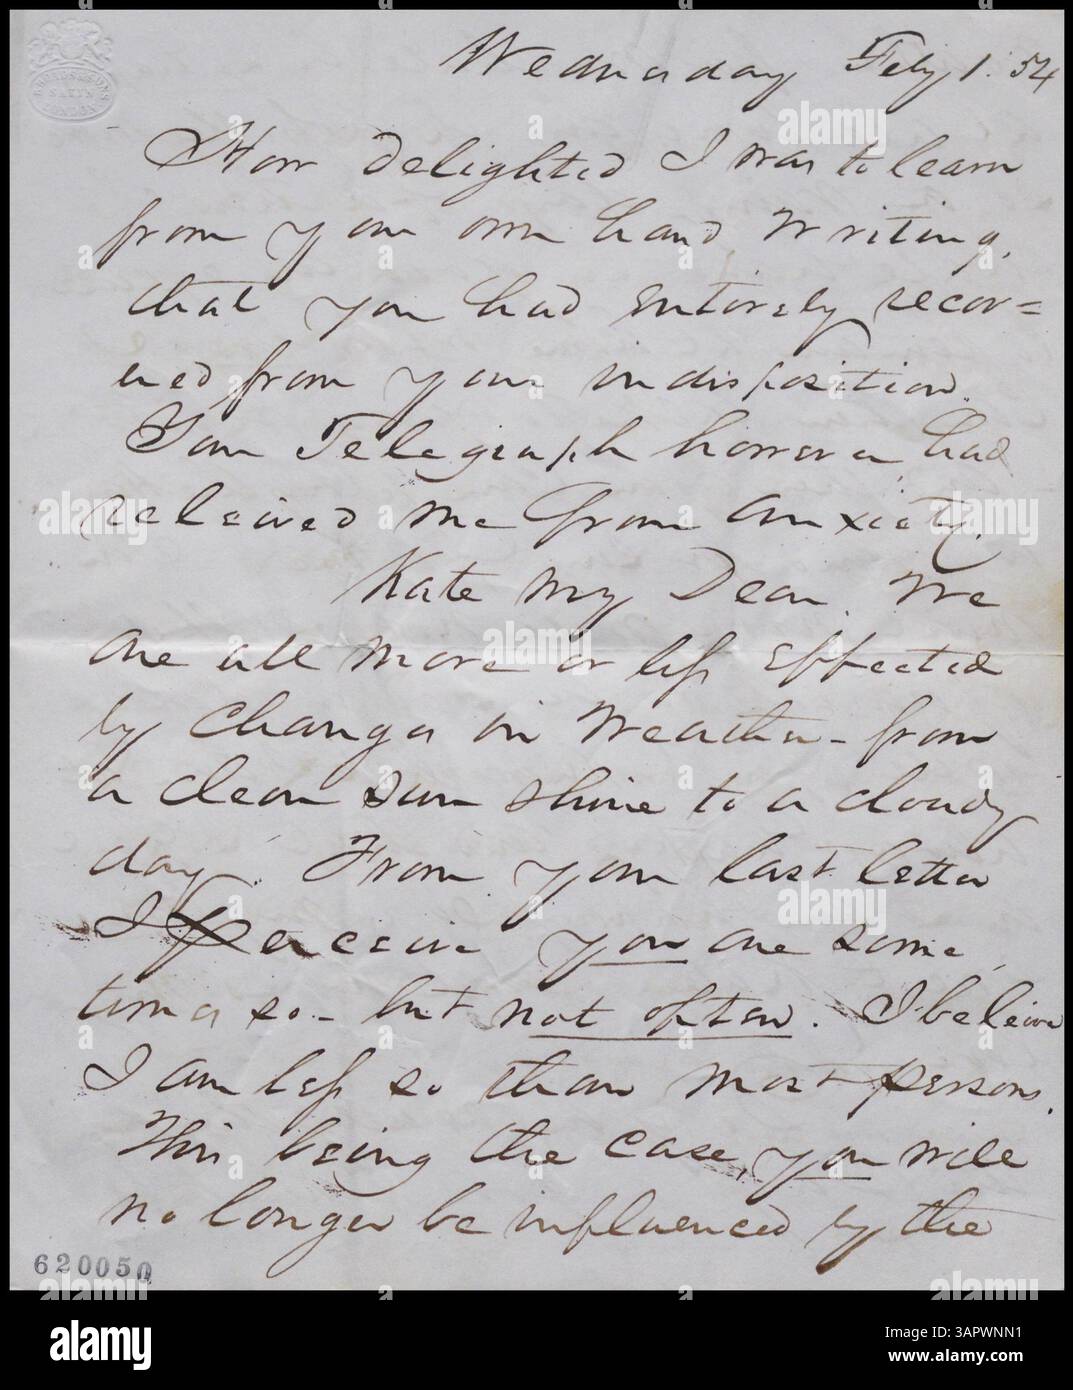 Wednesday Feby 1. 54
How delighted I was to learn
from your own hand writing,
that you had entirely recov=
ered from your indisposition.
Your Telegraph however had
releived me from anxiety.
Kate my Dear. We
are all more or less effected
by changes in Weather - from
a clear sun shine to a cloudy
day. From your last letter
I perceive you are some
times so - but not often. I beleive
I am less so than most persons.
This being the case, you will
no longer be influenced by the
620050
alamy
Image ID: 3APWNN1
www.alamy.com